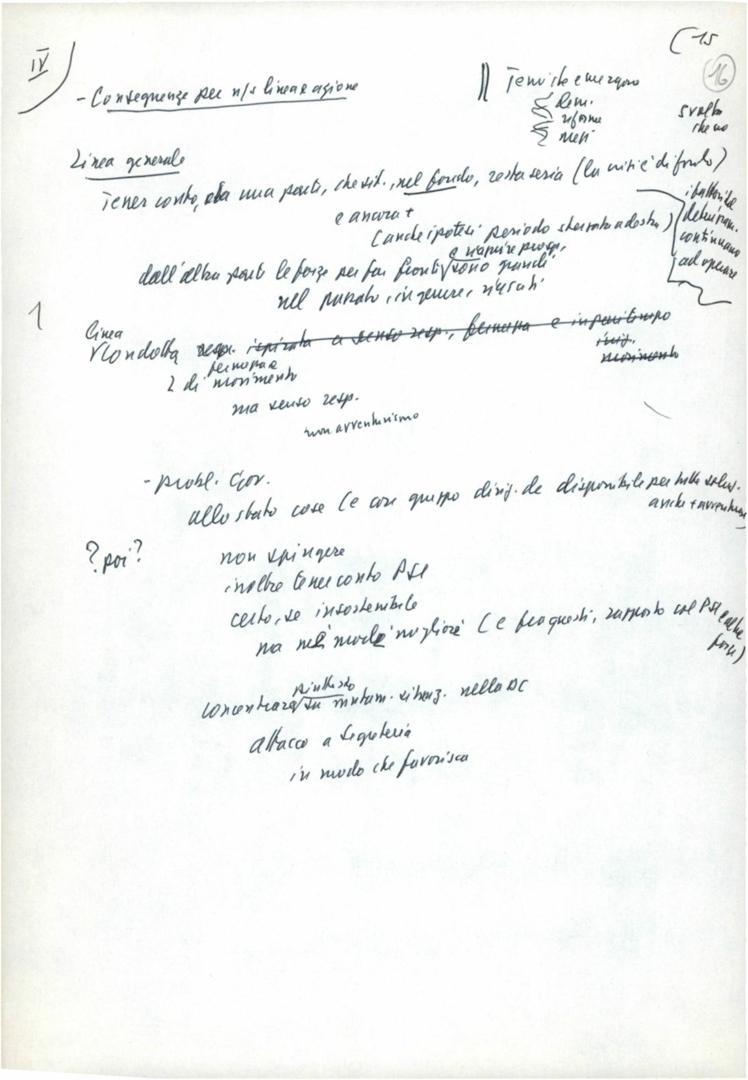 IV)
(15
16
- Conseguenze per n/s linea e azione
Temi che emergono
Dem.
riforme
svolta
che no
Linea generale
Tener conto, da una parte, che sit., nel fondo, resta seria (la crisi è di fondo)
e ancora +
(anche ipotesi periodo sterzata a destra)
i fattori che
continuano
ad operare
dall'altra parte le forze per far fronte sono grandi
e riaprire prosp.
nel passato, in genere, riusciti
1
linea
Condotta resp. ispirata a senso resp., fermezza e in pari tempo
movimento
fermezza e
2 di movimento
ma senso resp.
non avventurismo
- probl. Gov.
allo stato cose (e con gruppo dirig. dc disponibile per tutte soluz.
anche + avventur.)
? poi?
non spingere
inoltre tener conto PSI
certo, se insostenibile
ma nei modi migliori (e fra questi, rapporto col PSI e altre
forze)
piuttosto
concentrare su mutam. situaz. nella DC
attacco a Segreteria
in modo che favorisca